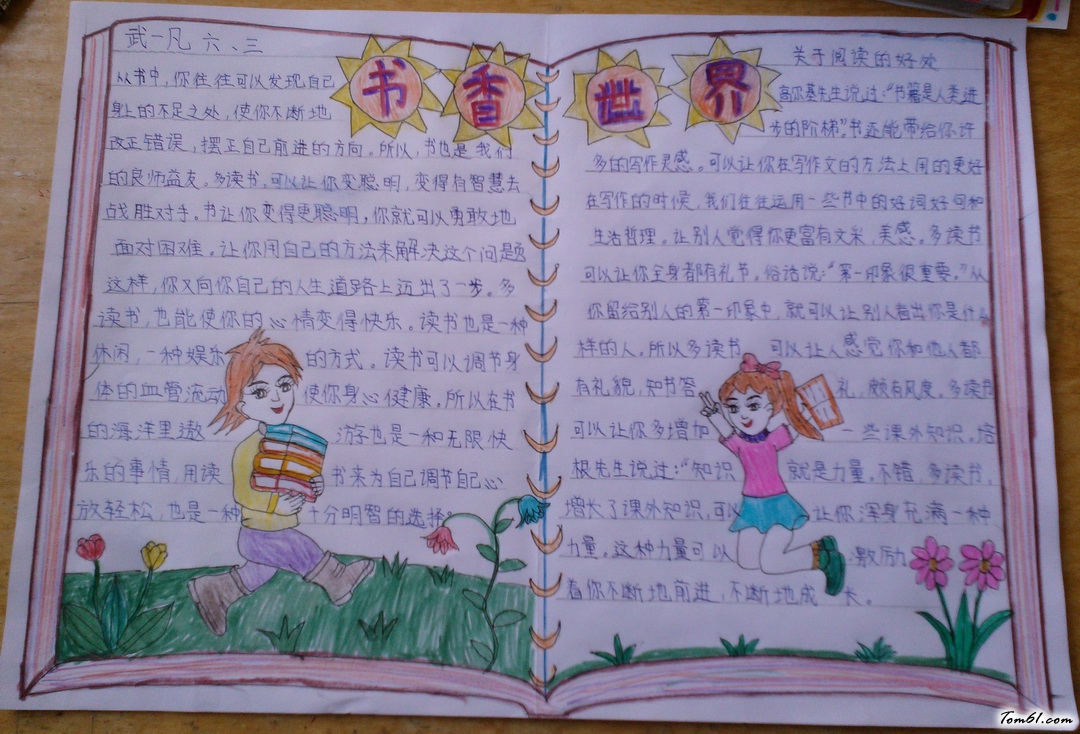 武一凡 六、三
书香世界
从书中,你往往可以发现自己
身上的不足之处,使你不断地
改正错误,摆正自己前进的方向。所以,书也是我们
的良师益友。多读书,可以让你变聪明,变得有智慧去
战胜对手。书让你变得更聪明,你就可以勇敢地
面对困难。让你用自己的方法来解决这个问题
这样,你又向你自己的人生道路上迈出了一步。多
读书,也能使你的心情变得快乐。读书也是一种
休闲,一种娱乐的方式。读书可以调节身
体的血管流动使你身心健康。所以在书
的海洋里遨游字也是一种无限快
乐的事情,用读书来为自己调节自己心
放轻松,也是一种十分明智的选择。
关于阅读的好处
高尔基先生说过:“书籍是人类进
步的阶梯”书还能带给你许
多的写作灵感。可以让你在写作文的方法上用的更好
在写作的时候,我们往往运用一些书中的好词好句和
生活哲理。让别人觉得你更富有文采,美感。多读书
可以让你全身都有礼节。俗话说:“第一印象很重要。”从
你留给别人的第一印象中,就可以让别人看出你是什么
样的人。所以多读书可以让人感觉你和他人都
有礼貌,知书答礼,颇有风度。多读书
可以让你多增加一些课外知识。培
根先生说过:“知识就是力量。不错,多读书,
增长了课外知识,可以让你浑身充满一种
力量。这种力量可以激励
着你不断地前进,不断地成长。
Tom61.com